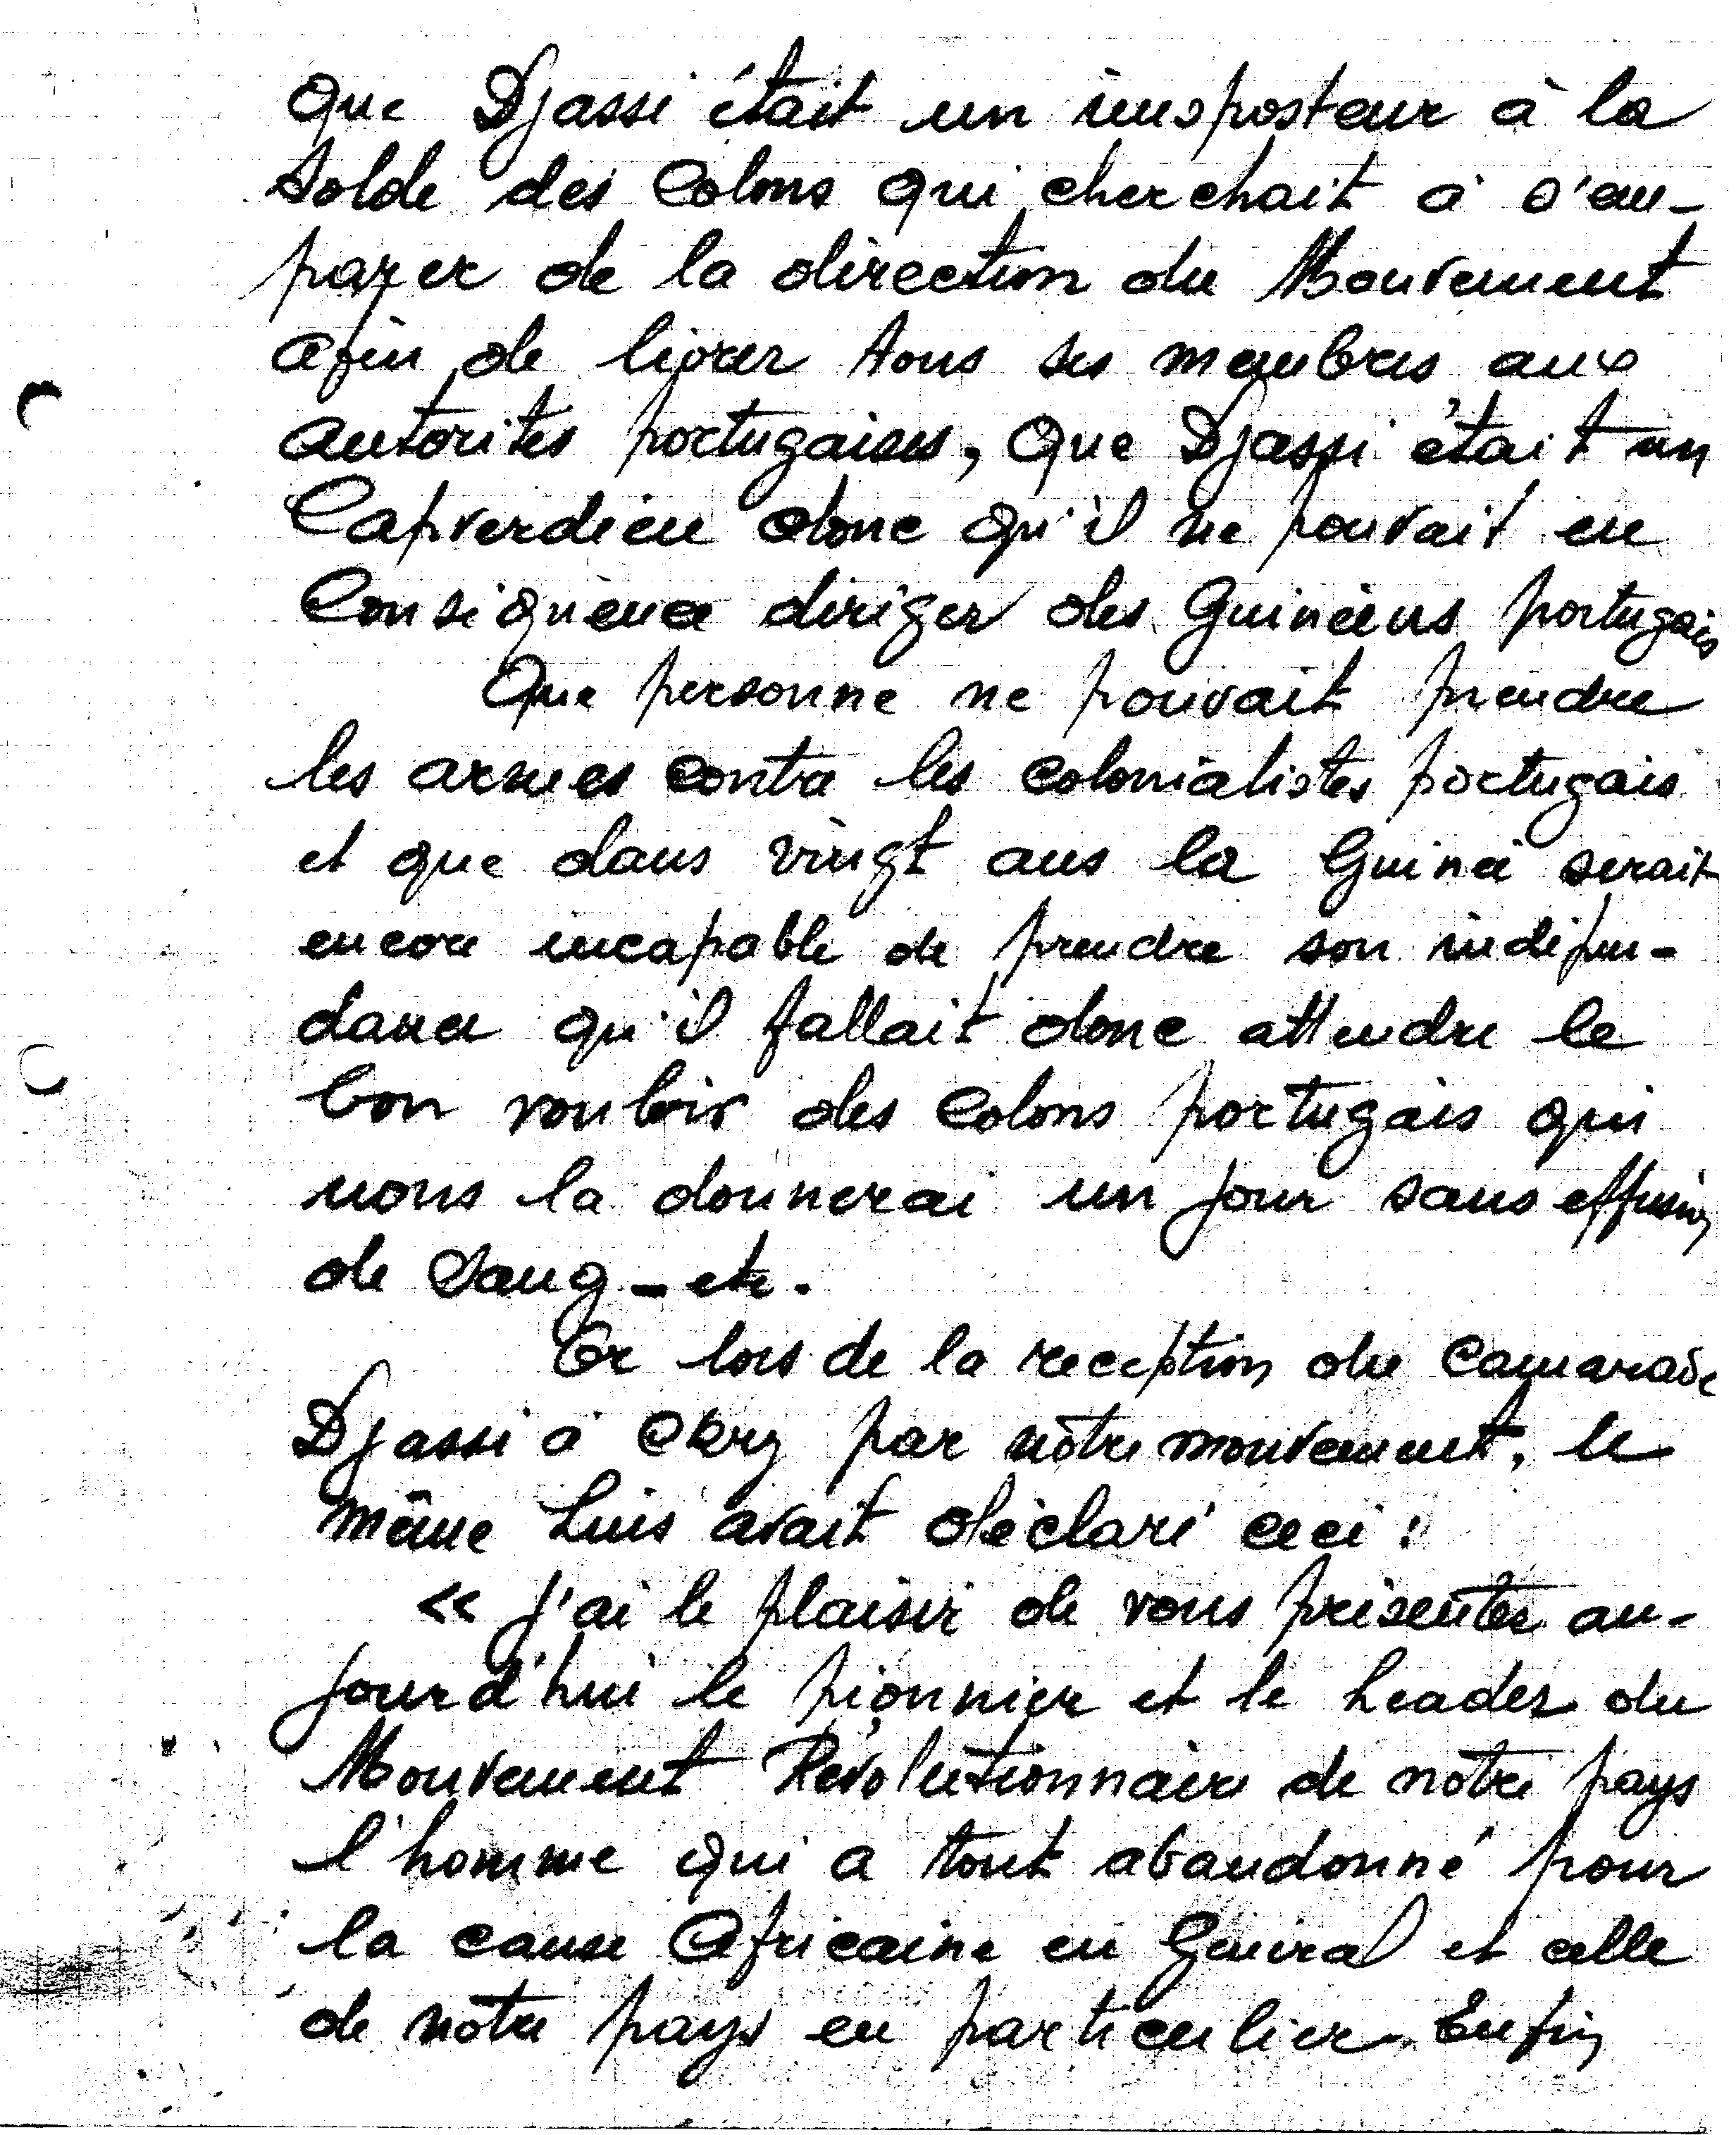 Que Djassi était un imposteur à la
solde des Colons qui cherchait à s'em-
parer de la direction du Mouvement
afin de livrer tous ses membres aux
autorités portugaises, que Djassi était un
Capverdien donc qu'il ne pouvait en
Conséquence diriger des Guinéens portugais
Que personne ne pouvait prendre
les armes contre les colonialistes portugais
et que dans vingt ans la Guinée serait
encore incapable de prendre son indépen-
dance qu'il fallait donc attendre le
bon vouloir des Colons portugais qui
nous la donnerai un jour sans effusion
de Sang - etc.
Or lors de la reception du Camarade
Djassi à Ckry par nôtre mouvement, le
même Luis avait déclaré ceci :
« J'ai le plaisir de vous présenter au-
jourd'hui le pionnier et le Leader du
Mouvement Révolutionnaire de nôtre pays
l'homme qui a tout abandonné pour
la cause Africaine en Général et celle
de nôtre pays en particulier. Enfin